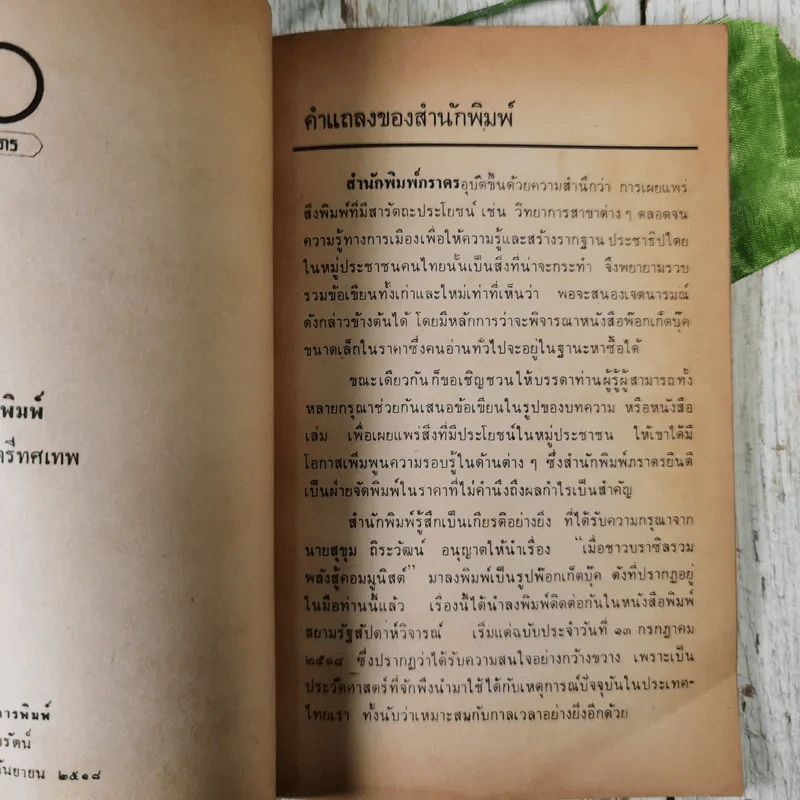 พิมพ์
รีทศเทพ
การพิมพ์
รัตน์
กันยายน ๒๕๑๘
คำแถลงของสำนักพิมพ์
สำนักพิมพ์ภราดรอุบัติขึ้นด้วยความสำนึกว่า การเผยแพร่
สิ่งพิมพ์ที่มีสารัตถะประโยชน์ เช่น วิทยาการสาขาต่าง ๆ ตลอดจน
ความรู้ทางการเมืองเพื่อให้ความรู้และสร้างรากฐาน ประชาธิปไตย
ในหมู่ประชาชนคนไทยนั้นเป็นสิ่งที่น่าจะกระทำ จึงพยายามรวบ
รวมข้อเขียนทั้งเก่าและใหม่เท่าที่เห็นว่า พอจะสนองเจตนารมณ์
ดังกล่าวข้างต้นได้ โดยมีหลักการว่าจะพิจารณาหนังสือพ๊อกเก็ตบุ๊ค
ขนาดเล็กในราคาซึ่งคนอ่านทั่วไปจะอยู่ในฐานะหาซื้อได้
ขณะเดียวกันก็ขอเชิญชวนให้บรรดาท่านผู้รู้ผู้สามารถทั้ง
หลายกรุณาช่วยกันเสนอข้อเขียนในรูปของบทความ หรือหนังสือ
เล่ม เพื่อเผยแพร่สิ่งที่มีประโยชน์ในหมู่ประชาชน ให้เขาได้มี
โอกาสเพิ่มพูนความรอบรู้ในด้านต่าง ๆ ซึ่งสำนักพิมพ์ภราดรยินดี
เป็นฝ่ายจัดพิมพ์ในราคาที่ไม่คำนึงถึงผลกำไรเป็นสำคัญ
สำนักพิมพ์รู้สึกเป็นเกียรติอย่างยิ่ง ที่ได้รับความกรุณาจาก
นายสุขุม ถิระวัฒน์ อนุญาตให้นำเรื่อง "เมื่อชาวบราซิลรวม
พลังสู้คอมมูนิสต์" มาลงพิมพ์เป็นรูปพ๊อกเก็ตบุ๊ค ดังที่ปรากฏอยู่
ในมือท่านนี้แล้ว เรื่องนี้ได้นำลงพิมพ์ติดต่อกันในหนังสือพิมพ์
สยามรัฐสัปดาห์วิจารณ์ เริ่มแต่ฉบับประจำวันที่ ๑๓ กรกฎาคม
๒๕๑๘ ซึ่งปรากฏว่าได้รับความสนใจอย่างกว้างขวาง เพราะเป็น
ประวัติศาสตร์ที่จักพึงนำมาใช้ได้กับเหตุการณ์ปัจจุบันในประเทศ-
ไทยเรา ทั้งนับว่าเหมาะสมกับกาลเวลาอย่างยิ่งอีกด้วย